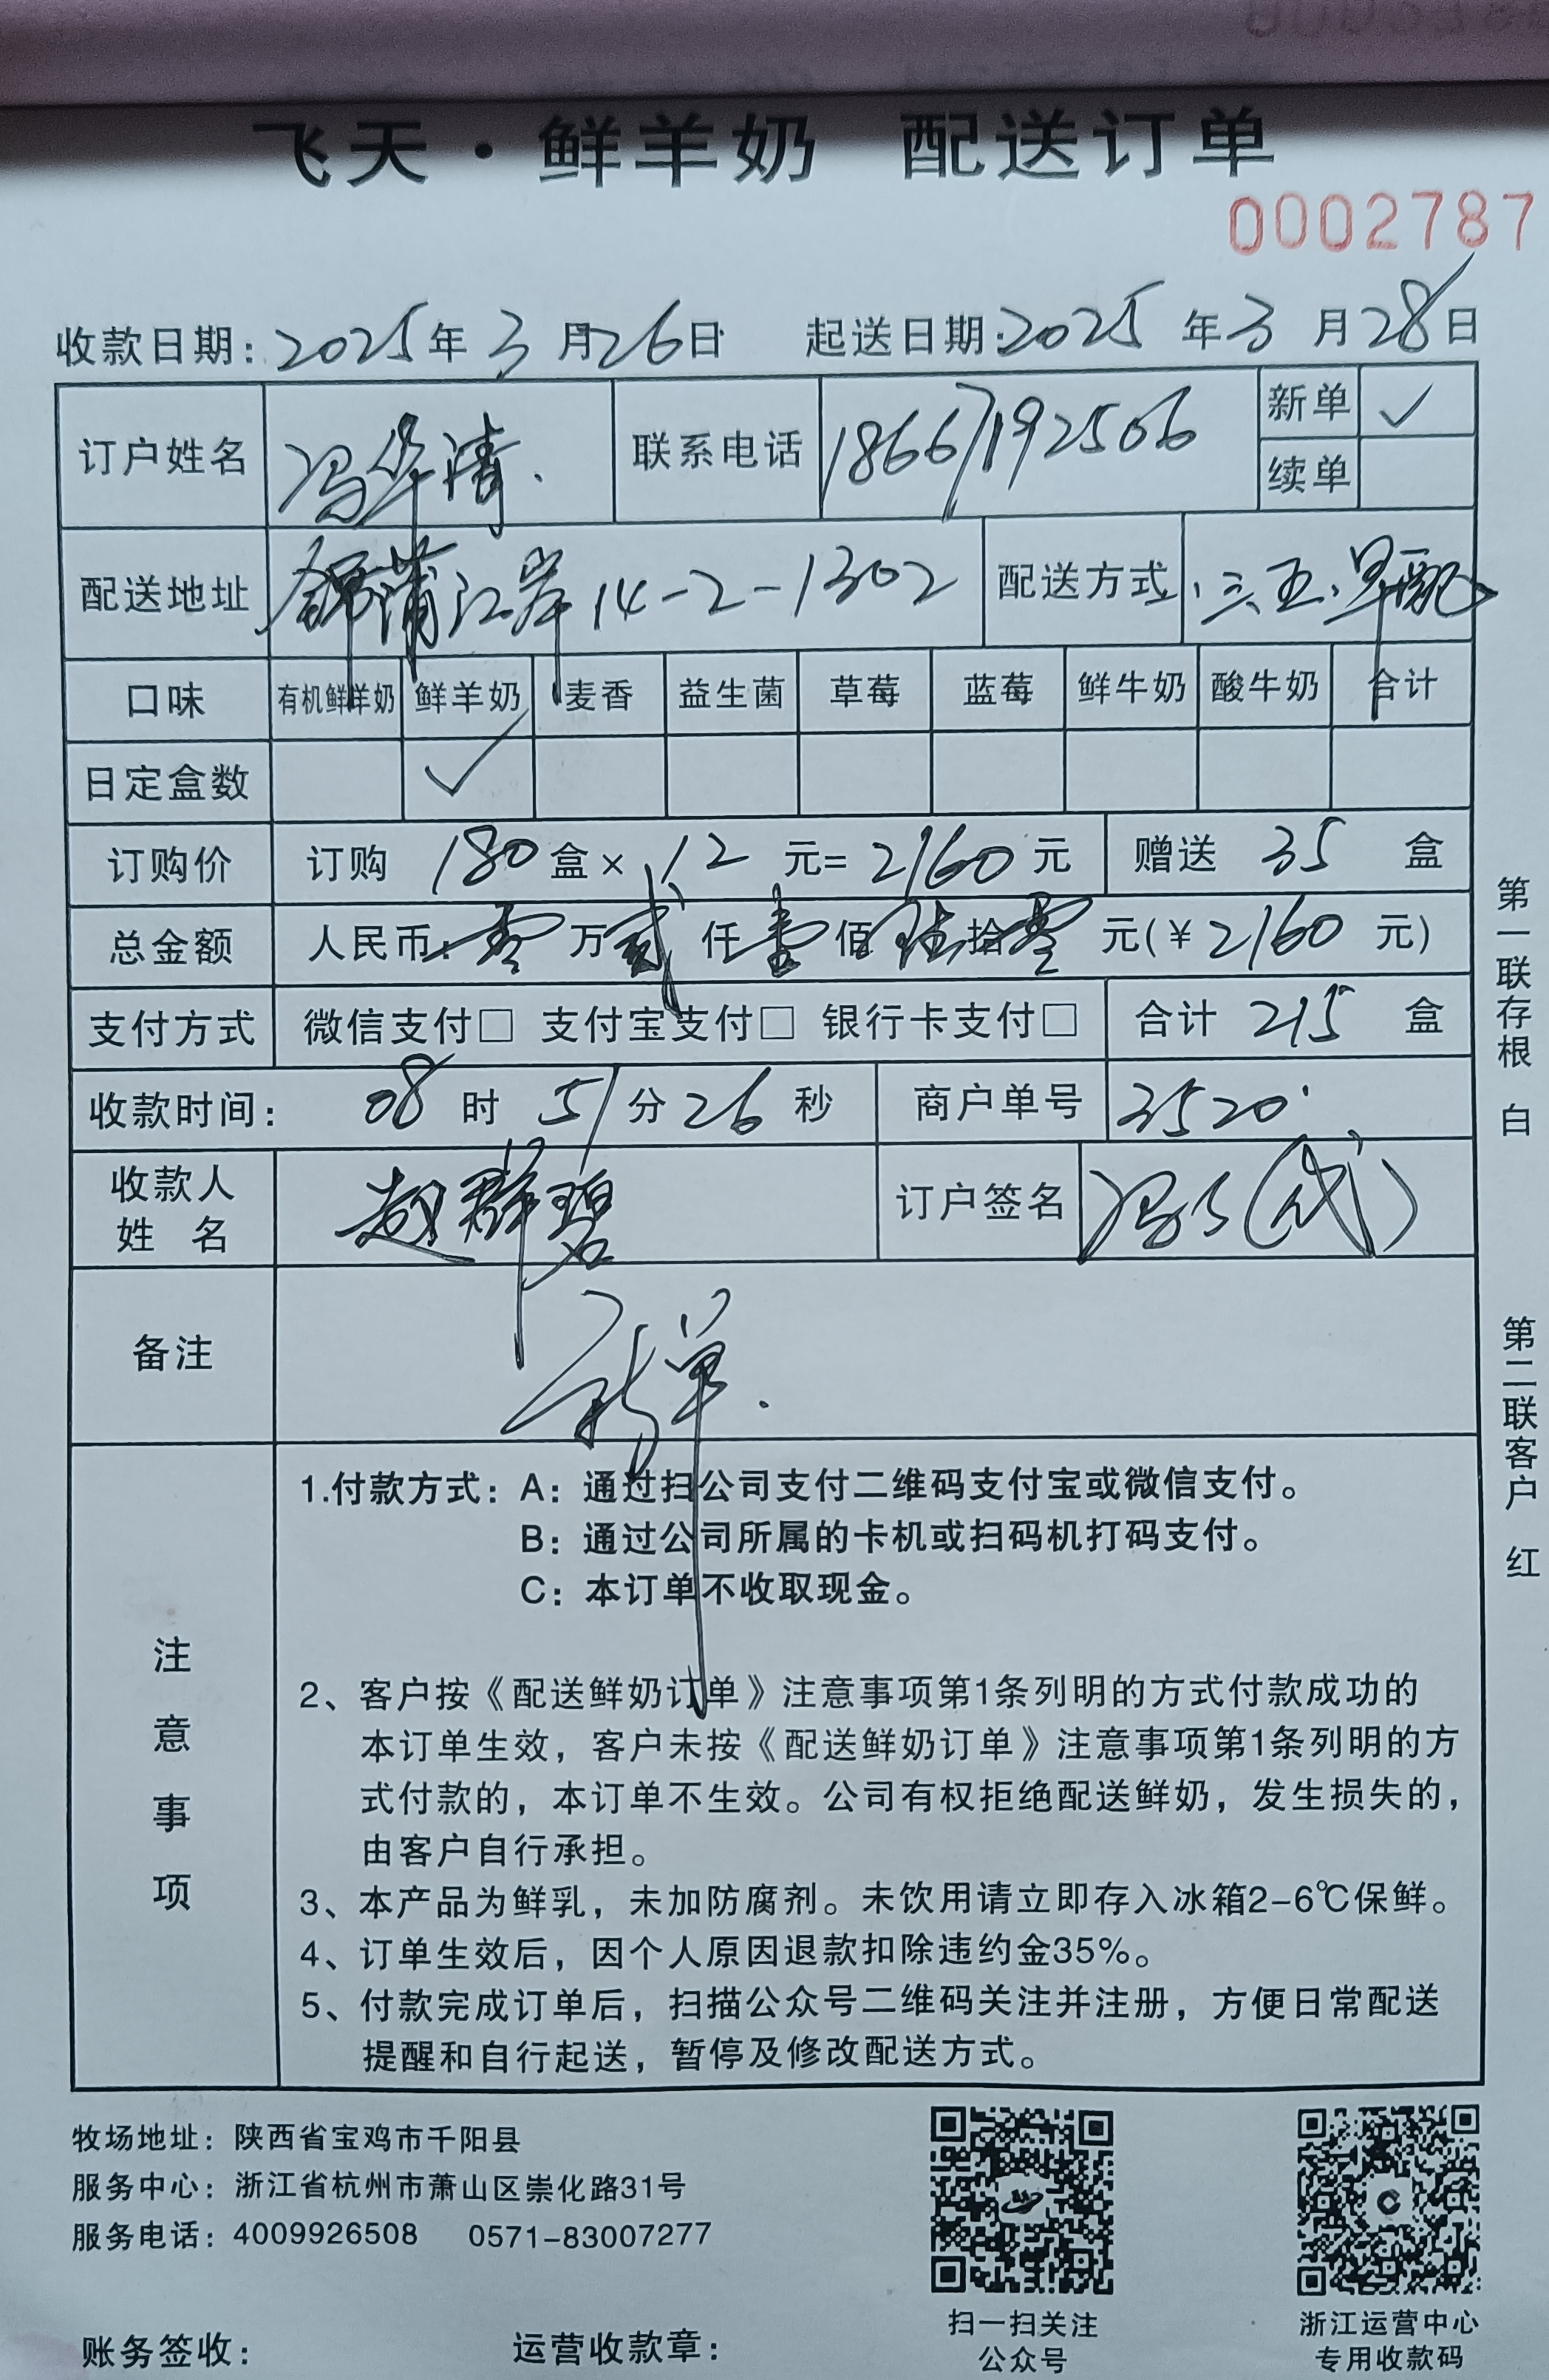 飞天·鲜羊奶 配送订单
0002787
收款日期：2025年3月26日 起送日期：2025年3月28日
订户姓名 冯华清. 联系电话 18667192506 新单 ✓
续单
配送地址 锦蒲江岸14-2-1302 配送方式 三、五、单配
口味 有机鲜羊奶 鲜羊奶 麦香 益生菌 草莓 蓝莓 鲜牛奶 酸牛奶 合计
日定盒数 ✓
订购价 订购 180 盒× 12 元= 2160 元 赠送 35 盒
总金额 人民币：零万贰仟壹佰陆拾零元(￥2160元)
支付方式 微信支付□ 支付宝支付□ 银行卡支付□ 合计 215 盒
收款时间： 08时51分26秒 商户单号 3520
收款人姓名 赵群碧 订户签名 冯(代)
备注 新单.
注意事项
1.付款方式：A：通过扫公司支付二维码支付宝或微信支付。
B：通过公司所属的卡机或扫码机打码支付。
C：本订单不收取现金。
2、客户按《配送鲜奶订单》注意事项第1条列明的方式付款成功的
本订单生效，客户未按《配送鲜奶订单》注意事项第1条列明的方
式付款的，本订单不生效。公司有权拒绝配送鲜奶，发生损失的，
由客户自行承担。
3、本产品为鲜乳，未加防腐剂。未饮用请立即存入冰箱2-6℃保鲜。
4、订单生效后，因个人原因退款扣除违约金35%。
5、付款完成订单后，扫描公众号二维码关注并注册，方便日常配送
提醒和自行起送，暂停及修改配送方式。
第一联存根 白
第二联客户 红
牧场地址：陕西省宝鸡市千阳县
服务中心：浙江省杭州市萧山区崇化路31号
服务电话：4009926508 0571-83007277
扫一扫关注
公众号
浙江运营中心
专用收款码
账务签收： 运营收款章：